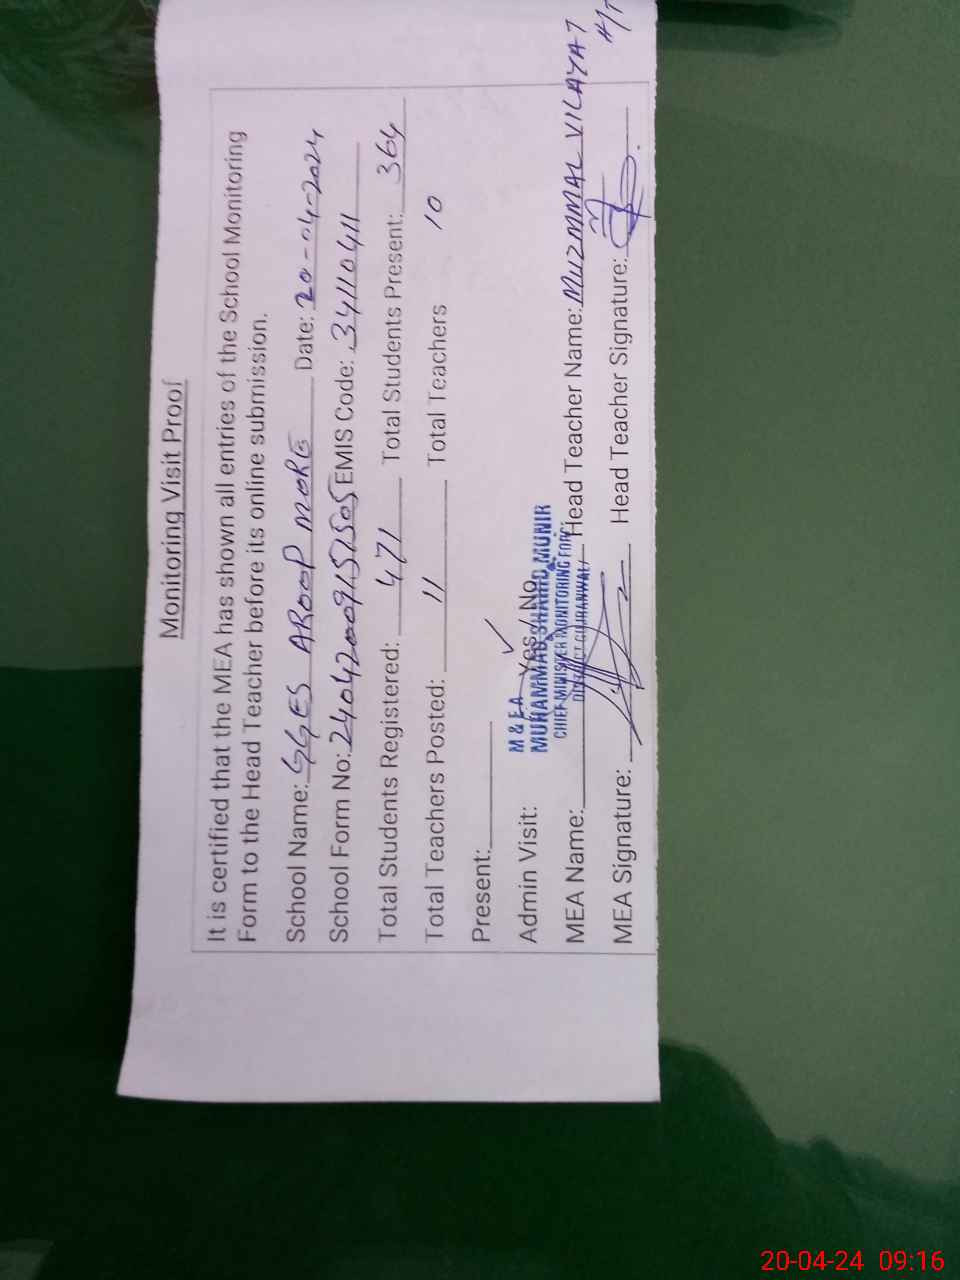 Monitoring Visit Proof
It is certified that the MEA has shown all entries of the School Monitoring
Form to the Head Teacher before its online submission.
School Name: GGES AROOP MORE Date: 20-04-2024
School Form No: 24042009151505 EMIS Code: 34110411
Total Students Registered: 471 Total Students Present: 364
Total Teachers Posted: 11 Total Teachers 10
Present:
Admin Visit: Yes / No
M & EA
MUHAMMAD SHAHID MUNIR
CHIEF MINISTER MONITORING FORCE
DISTRICT GUJRANWALA
MEA Name: Head Teacher Name: MUZMMAL VILAYAT
H/T
MEA Signature: Head Teacher Signature:
20-04-24 09:16